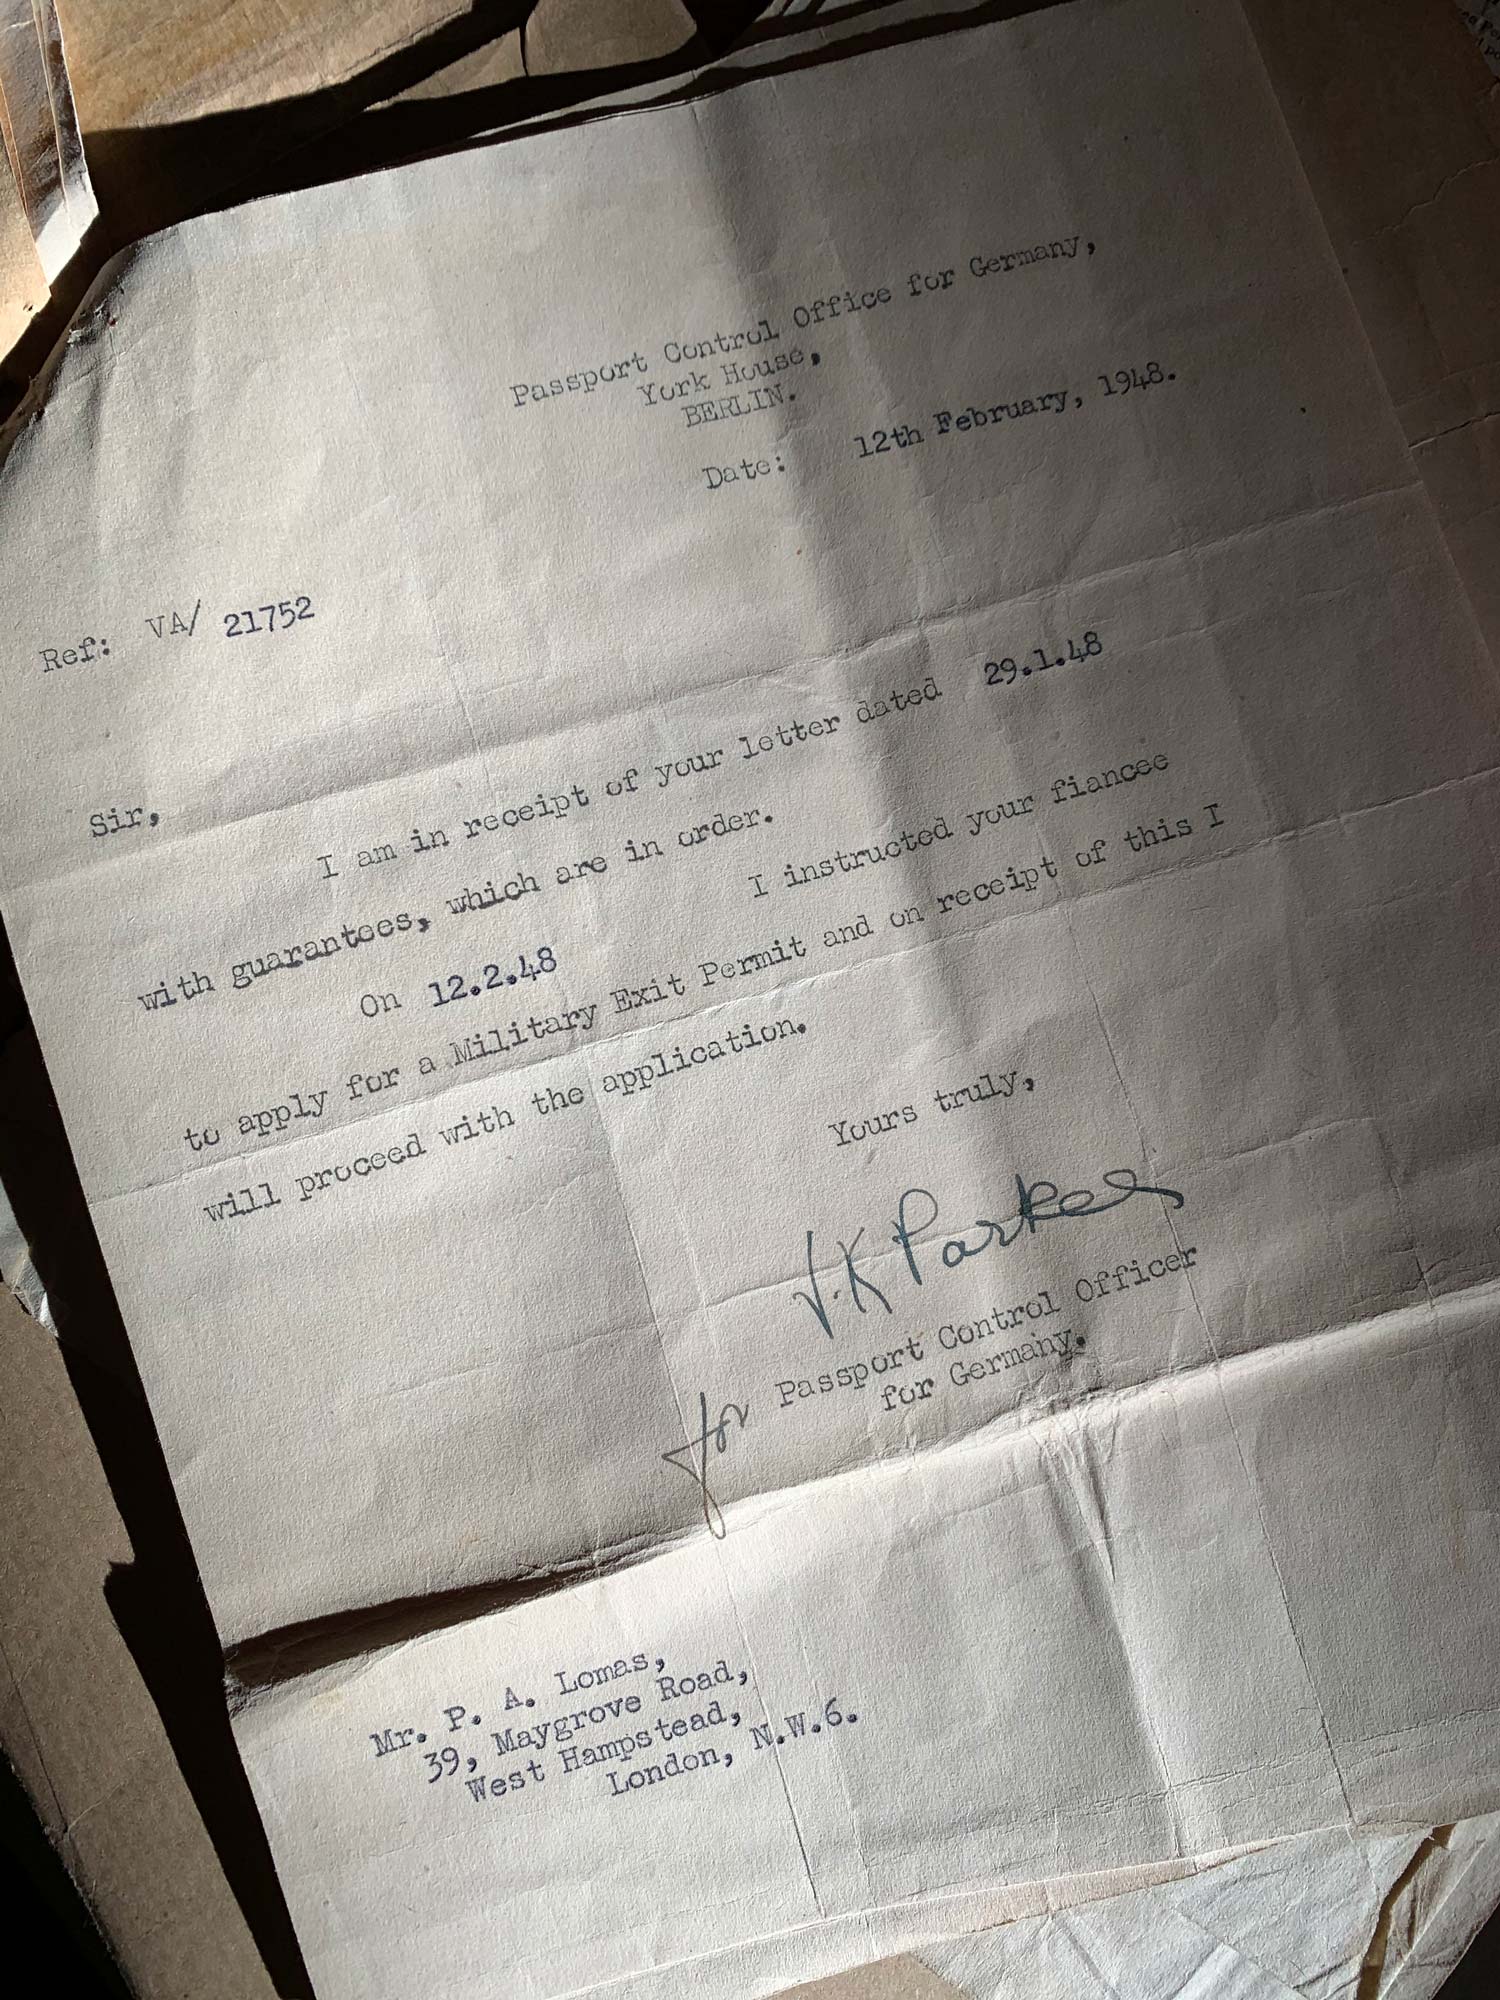 Passport Control Office for Germany,
York House,
BERLIN.
Date: 12th February, 1948.
Ref: VA/ 21752
Sir,
I am in receipt of your letter dated 29.1.48
with guarantees, which are in order.
On 12.2.48 I instructed your fiancee
to apply for a Military Exit Permit and on receipt of this I
will proceed with the application.
Yours truly,
J.K Parkes
for Passport Control Officer
for Germany.
Mr. P. A. Lomas,
39, Maygrove Road,
West Hampstead,
London, N.W.6.